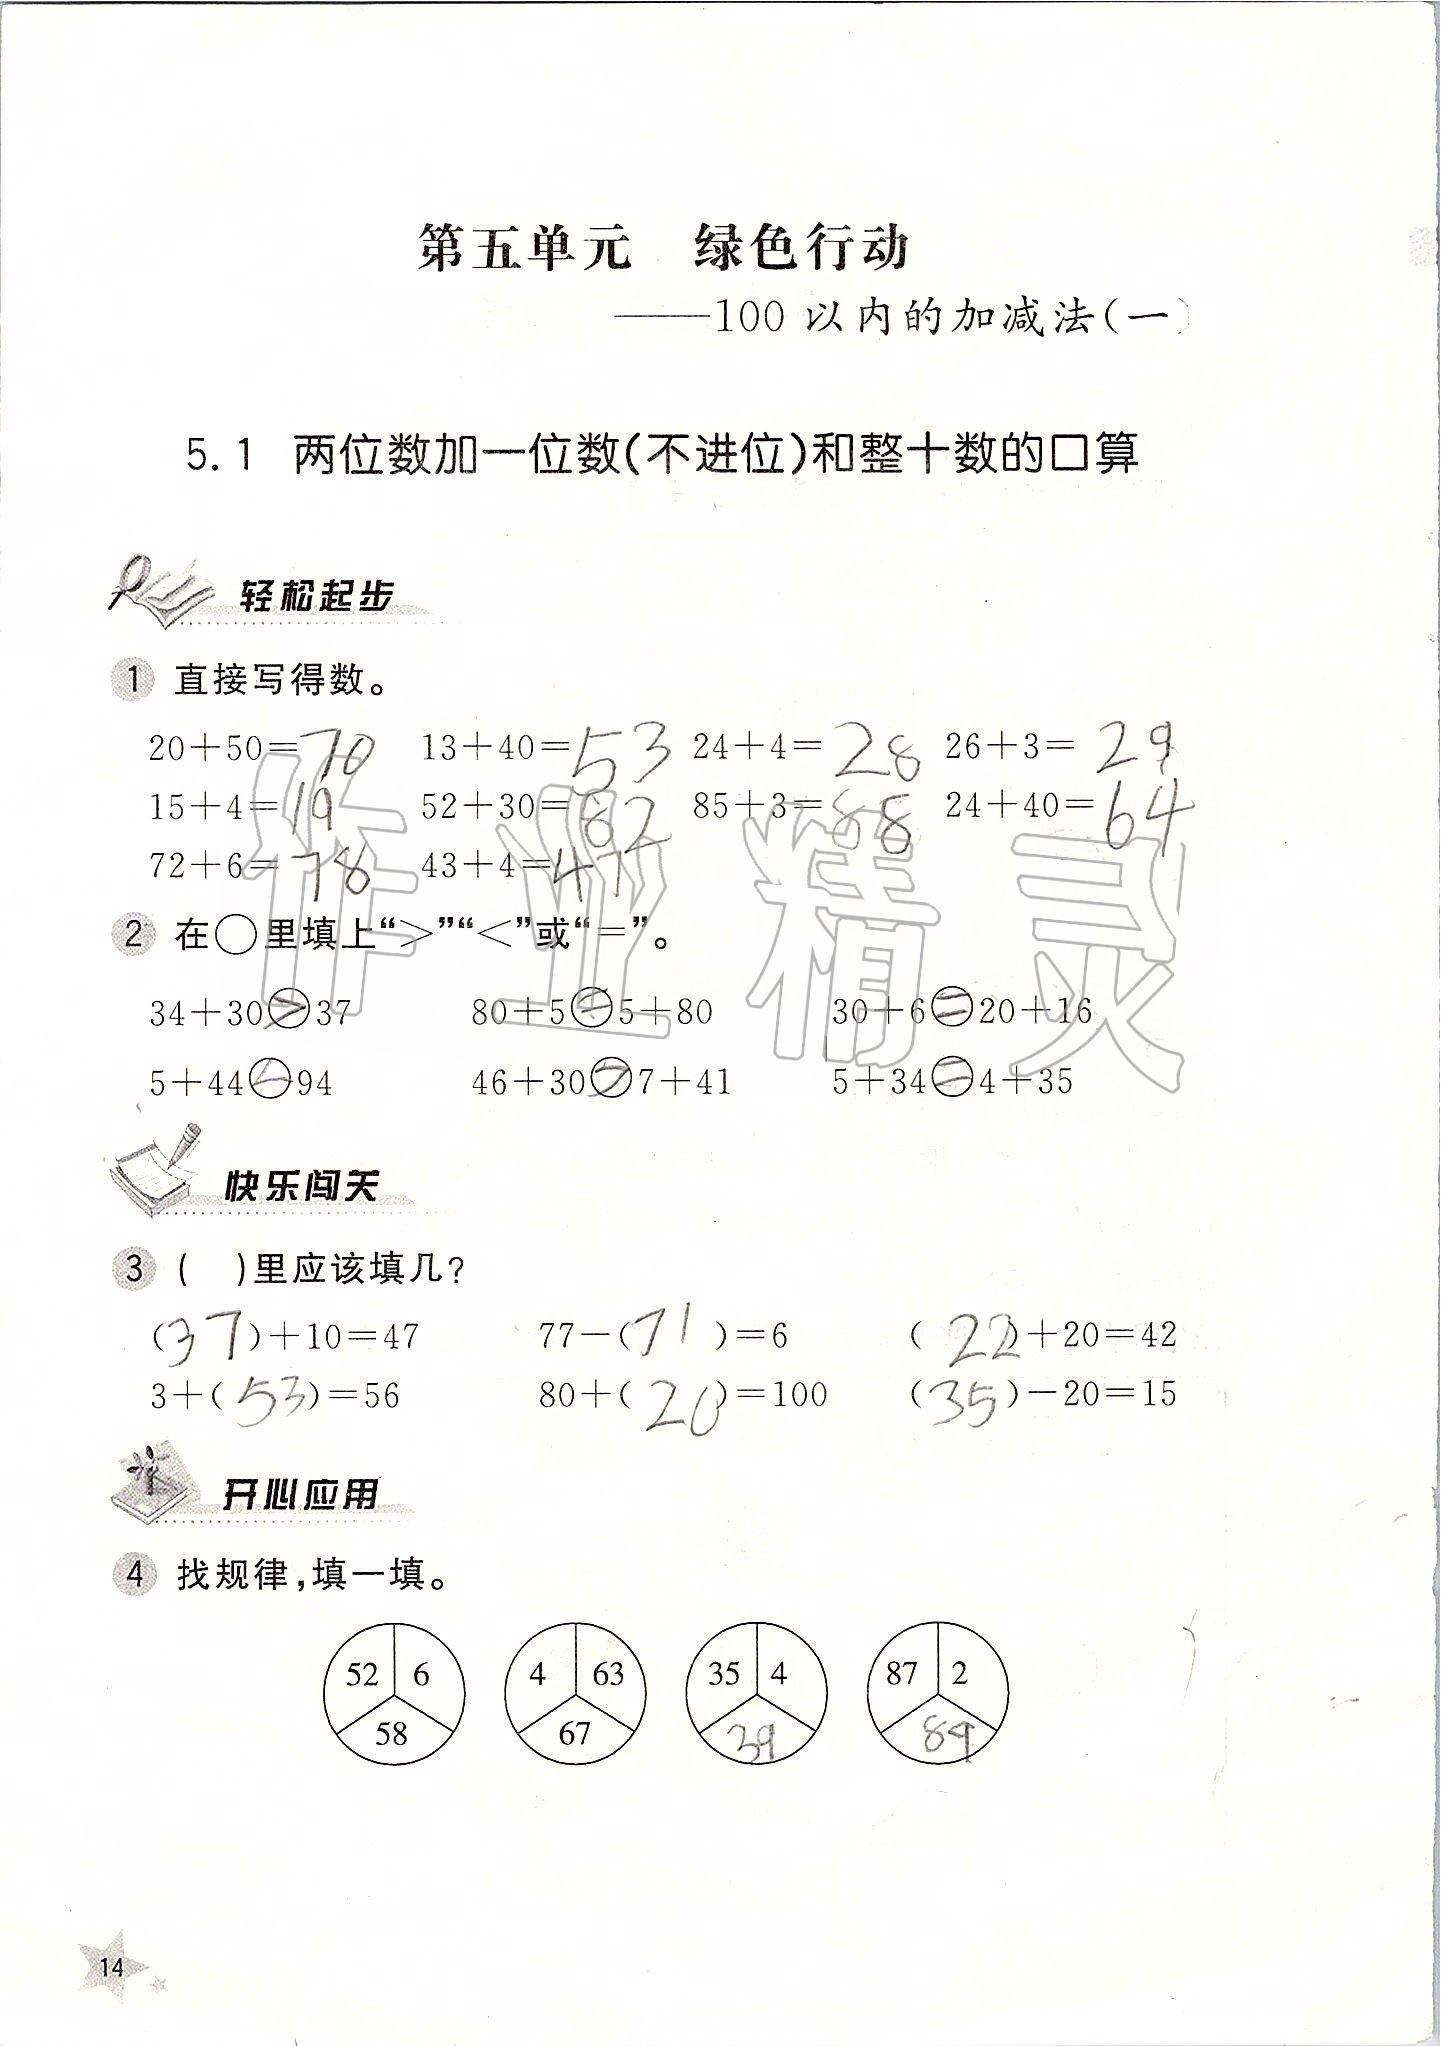 第五单元 绿色行动
——100以内的加减法(一)
5.1 两位数加一位数(不进位)和整十数的口算
轻松起步
1 直接写得数。
20+50=70 13+40=53 24+4=28 26+3=29
15+4=19 52+30=82 85+3=88 24+40=64
72+6=78 43+4=47
2 在○里填上“>”“<”或“=”。
34+30>37 80+5=5+80 30+6=20+16
5+44<94 46+30>7+41 5+34=4+35
快乐闯关
3 ( )里应该填几?
(37)+10=47 77-(71)=6 (22)+20=42
3+(53)=56 80+(20)=100 (35)-20=15
开心应用
4 找规律,填一填。
52 6 4 63 35 4 87 2
58 67 39 89
14
作业精灵